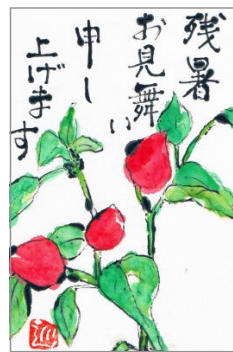 残暑
お見舞い
申し
上げます